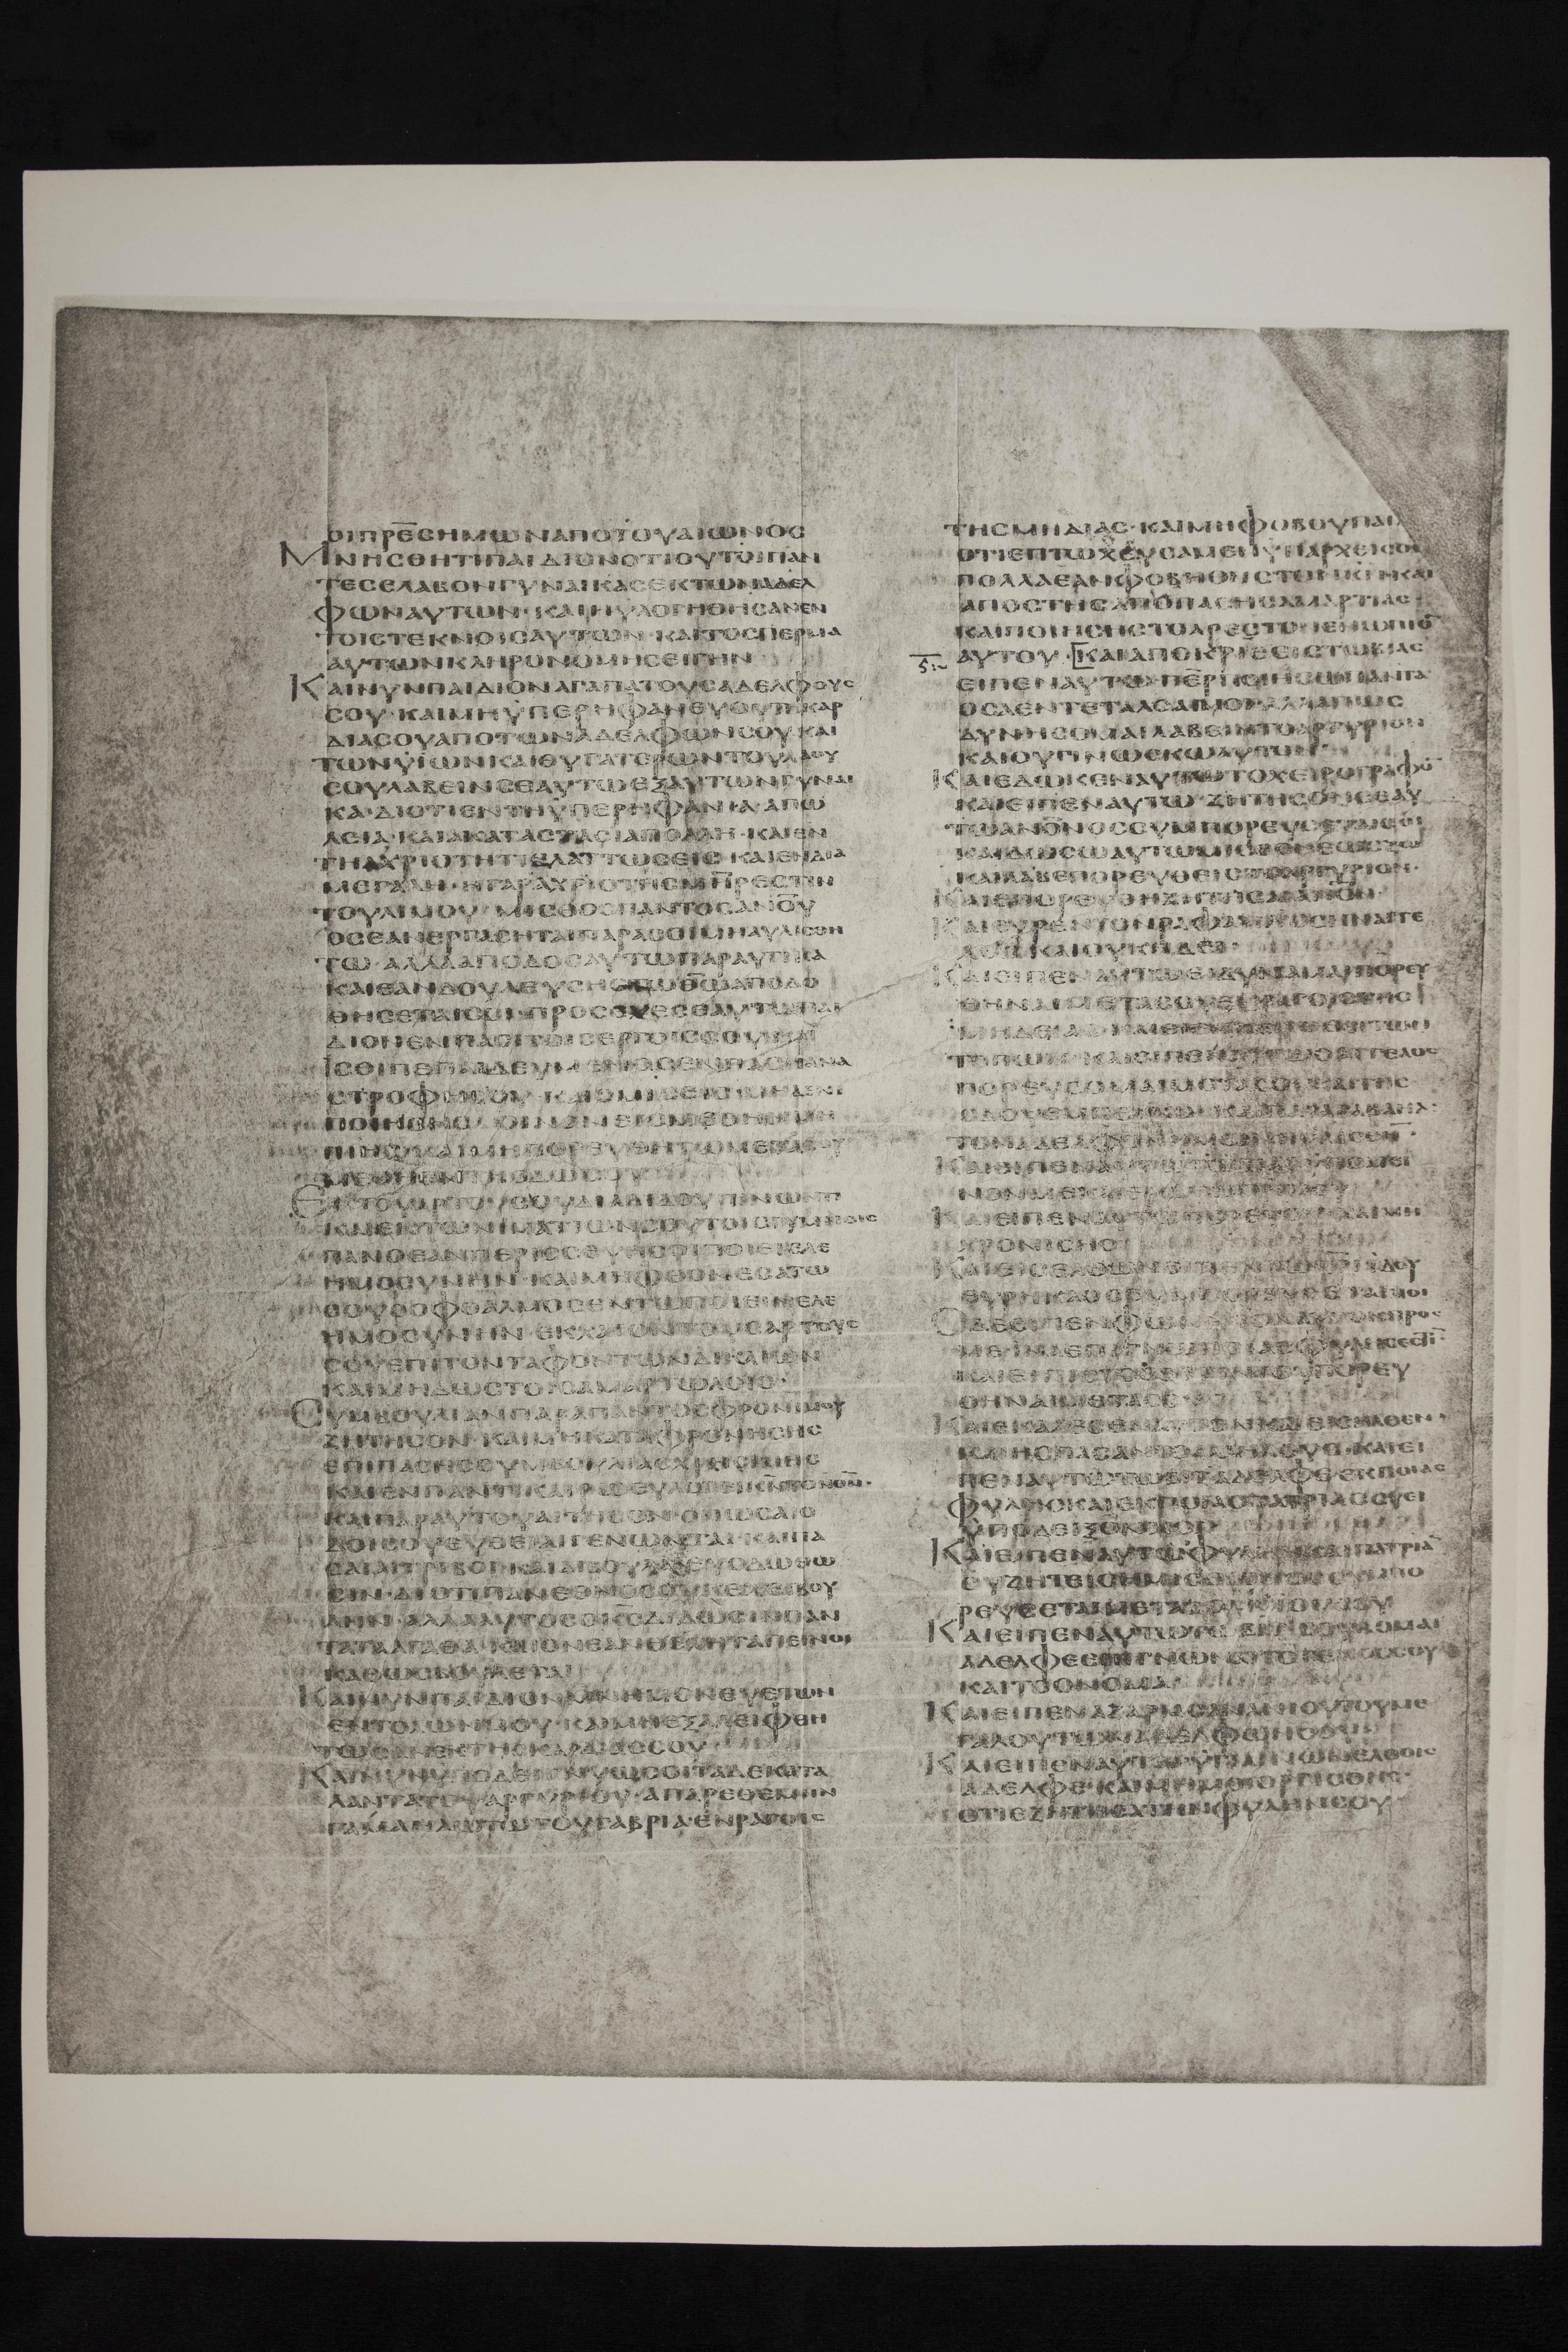 ΟΙΠΡΕ̅ϹΗΜΩΝΑΠΟΤΟΥΑΙΩΝΟϹ
ΜΝΗϹΘΗΤΙΠΑΙΔΙΟΝΟΤΙΟΥΤΟΙΠΑΝ
ΤΕϹΕΛΑΒΟΝΓΥΝΑΙΚΑϹΕΚΤΩΝΑΔΕΛ
ΦΩΝΑΥΤΩΝ·ΚΑΙΗΥΛΟΓΗΘΗϹΑΝΕΝ
ΤΟΙϹΤΕΚΝΟΙϹΑΥΤΩΝ·ΚΑΙΤΟϹΠΕΡΜΑ
ΑΥΤΩΝΚΛΗΡΟΝΟΜΗϹΕΙΓΗΝ
ΚΑΙΝΥΝΠΑΙΔΙΟΝΑΓΑΠΑΤΟΥϹΑΔΕΛΦΟΥϹ
ϹΟΥ·ΚΑΙΜΗΫΠΕΡΗΦΑΝΕΥΟΥΤΗΚΑΡ
ΔΙΑϹΟΥΑΠΟΤΩΝΑΔΕΛΦΩΝϹΟΥΚΑΙ
ΤΩΝΫΙΩΝΚΑΙΘΥΓΑΤΕΡΩΝΤΟΥΛΑΟΥ
ϹΟΥΛΑΒΕΙΝϹΕΑΥΤΩΕΞΑΥΤΩΝΓΥΝΑΙ
ΚΑ·ΔΙΟΤΙΕΝΤΗΫΠΕΡΗΦΑΝΙΑ·ΑΠΩ
ΛΕΙΑ·ΚΑΙΑΚΑΤΑϹΤΑϹΙΑΠΟΛΛΗ·ΚΑΙΕΝ
ΤΗΑΧΡΙΟΤΗΤΙΕΛΑΤΤΩϹΕΙϹ·ΚΑΙΕΝΔΙΑ
ΜΕΓΑΛΗ·ΗΓΑΡΑΧΡΙΟΤΗϹΜΗ̅Ρ̅ΕϹΤΙΝ
ΤΟΥΛΙΜΟΥ·ΜΙϹΘΟϹΠΑΝΤΟϹΑΝΟ̅Υ̅
ΟϹΕΑΝΕΡΓΑϹΗΤΑΙΠΑΡΑϹΟΙΜΗΑΥΛΙϹΘΗ
ΤΩ·ΑΛΛΑΑΠΟΔΟϹΑΥΤΩΠΑΡΑΥΤΙΚΑ
ΚΑΙΕΑΝΔΟΥΛΕΥϹΗϹΤΩΘ̅Ω̅ΑΠΟΔΟ
ΘΗϹΕΤΑΙϹΟΙ·ΠΡΟϹΕΧΕϹΕΑΥΤΩΠΑΙ
ΔΙΟΝΕΝΠΑϹΙΤΟΙϹΕΡΓΟΙϹϹΟΥΚΑΙ
ΙϹΘΙΠΕΠΑΙΔΕΥΜΕΝΟϹΕΝΠΑϹΗΑΝΑ
ϹΤΡΟΦΗϹΟΥ·ΚΑΙΟΜΙϹΕΙϹΜΗΔΕΝΙ
ΠΟΙΗϹΗϹ·ΟΙΝΟΝΕΙϹΜΕΘΗΝΜΗ
ΠΙΗϹ·ΚΑΙΜΗΠΟΡΕΥΘΗΤΩΜΕΤΑϹΟΥ
ΜΕΘΗΕΝΤΗΟΔΩϹΟΥ
ΕΚΤΟΥΑΡΤΟΥϹΟΥΔΙΑΔΙΔΟΥΠΙΝΩΝΤΙ
ΚΑΙΕΚΤΩΝΙΜΑΤΙΩΝϹΟΥΤΟΙϹΓΥΜΝΟΙϹ
ΠΑΝΟΕΑΝΠΕΡΙϹϹΕΥΗϹΟΙΠΟΙΕΙΕΛΕ
ΗΜΟϹΥΝΗΝ·ΚΑΙΜΗΦΘΟΝΕϹΑΤΩ
ϹΟΥΟΟΦΘΑΛΜΟϹΕΝΤΩΠΟΙΕΙΝΕΛΕ
ΗΜΟϹΥΝΗΝ·ΕΚΧΕΟΝΤΟΥϹΑΡΤΟΥϹ
ϹΟΥΕΠΙΤΟΝΤΑΦΟΝΤΩΝΔΙΚΑΙΩΝ
ΚΑΙΜΗΔΩϹΤΟΙϹΑΜΑΡΤΩΛΟΙϹ·
ϹΥΜΒΟΥΛΙΑΝΠΑΡΑΠΑΝΤΟϹΦΡΟΝΙΜΟΥ
ΖΗΤΗϹΟΝ·ΚΑΙΜΗΚΑΤΑΦΡΟΝΗϹΗϹ
ΕΠΙΠΑϹΗϹϹΥΜΒΟΥΛΙΑϹΧΡΗϹΙΜΗϹ
ΚΑΙΕΝΠΑΝΤΙΚΑΙΡΩΕΥΛΟΓΕΙΚ̅Ν̅ΤΟΝΘ̅Ν̅·
ΚΑΙΠΑΡΑΥΤΟΥΑΙΤΗϹΟΝ·ΟΠΩϹΑΙΟ
ΔΟΙϹΟΥΕΥΘΕΙΑΙΓΕΝΩΝΤΑΙ·ΚΑΙΠΑ
ϹΑΙΑΙΤΡΙΒΟΙ·ΚΑΙΔΙΒΟΥΛΑΙΕΥΟΔΩΘΩ
ϹΙΝ·ΔΙΟΤΙΠΑΝΕΘΝΟϹΟΥΚΕΧΕΙΒΟΥ
ΛΗΝ·ΑΛΛΑΑΥΤΟϹΟΚ̅Ϲ̅ΔΙΔΩϹΙΝΠΑΝ
ΤΑΤΑΑΓΑΘΑ·ΚΑΙΟΝΕΑΝΘΕΛΗΤΑΠΕΙΝΟΙ
ΚΑΘΩϹΒΟΥΛΕΤΑΙ
ΚΑΙΝΥΝΠΑΙΔΙΟΝΜΝΗΜΟΝΕΥΕΤΩΝ
ΕΝΤΟΛΩΝΜΟΥ·ΚΑΙΜΗΕΞΑΛΕΙΦΘΗ
ΤΩϹΑΝΕΚΤΗϹΚΑΡΔΙΑϹϹΟΥ
ΚΑΙΝΥΝΫΠΟΔΕΙΚΝΥΩϹΟΙΤΑΔΕΚΑΤΑ
ΛΑΝΤΑΤΟΥΑΡΓΥΡΙΟΥ·ΑΠΑΡΕΘΕΜΗΝ
ΓΑΒΑΗΛΩΤΩΤΟΥΓΑΒΡΙΑ·ΕΝΡΑΓΟΙϹ
ΤΗϹΜΗΔΙΑϹ·ΚΑΙΜΗΦΟΒΟΥΠΑΙ
ΟΤΙΕΠΤΩΧΕΥϹΑΜΕΝΫΠΑΡΧΕΙϹΟΙ
ΠΟΛΛΑΕΑΝΦΟΒΗΘΗϹΤΟΝΘ̅Ν̅ΚΑΙ
ΑΠΟϹΤΗϹΑΠΟΠΑϹΗϹΑΜΑΡΤΙΑϹ·
ΚΑΙΠΟΙΗϹΗϹΤΟΑΡΕϹΤΟΝΕΝΩΠΙΟ̅
ΑΥΤΟΥ·ΚΑΙΑΠΟΚΡΙΘΕΙϹΤΩΒΙΑϹ
ΕΙΠΕΝΑΥΤΩ·ΠΕΡΠΟΙΗϹΩΠΑΝΤΑ
ΟϹΑΕΝΤΕΤΑΛϹΑΙΜΟΙ·ΑΛΛΑΠΩϹ
ΔΥΝΗϹΟΜΑΙΛΑΒΕΙΝΤΟΑΡΓΥΡΙΟΝ
ΚΑΙΟΥΓΙΝΩϹΚΩΑΥΤΟΝ
ΚΑΙΕΔΩΚΕΝΑΥΤΩΤΟΧΕΙΡΟΓΡΑΦΟ̅
ΚΑΙΕΙΠΕΝΑΥΤΩ·ΖΗΤΗϹΟΝϹΕΑΥ
ΤΩΑΝΟ̅Ν̅ΟϹϹΥΜΠΟΡΕΥϹΕΤΑΙϹΟΙ
ΚΑΙΔΩϹΩΑΥΤΩΜΙϹΘΟΝΕΩϹΖΩ
ΚΑΙΛΑΒΕΠΟΡΕΥΘΕΙϹΤΟΑΡΓΥΡΙΟΝ·
ΚΑΙΕΠΟΡΕΥΘΗΖΗΤΗϹΑΙΑΝΟ̅Ν̅·
ΚΑΙΕΥΡΕΝΤΟΝΡΑΦΑΗΛΟϹΗΝΑΓΓΕ
ΛΟϹ·ΚΑΙΟΥΚΗΔΕΙ·
ΚΑΙΕΙΠΕΝΑΥΤΩΕΙΔΥΝΑΜΑΙΠΟΡΕΥ
ΘΗΝΑΙΜΕΤΑϹΟΥΕΝΡΑΓΟΙϹΤΗϹ
ΜΗΔΕΙΑϹ·ΚΑΙΕΙΕΜΠΕΙΡΟϹΕΙΤΩΝ
ΤΟΠΩΝ·ΚΑΙΕΙΠΕΝΑΥΤΩΟΑΓΓΕΛΟϹ
ΠΟΡΕΥϹΟΜΑΙΜΕΤΑϹΟΥΚΑΙΤΗϹ
ΤΟΝΑΔΕΛΦΟΝΗΜΩΝΗΥΛΙϹΘΗΝ·
ΚΑΙΕΙΠΕΝΑΥΤΩΤΩΒΙΑϹΫΠΟΜΕΙ
ΚΑΙΕΙΠΕΝΑΥΤΩΠΟΡΕΥΟΥΚΑΙΜΗ
ΧΡΟΝΙϹΗϹ
ΚΑΙΕΙϹΕΛΘΩΝΕΙΠΕΝΤΩΠ̅Ρ̅Ι̅ΙΔΟΥ
ΕΥΡΗΚΑΟϹϹΥΜΠΟΡΕΥϹΕΤΑΙΜΟΙ
ΟΔΕΕΙΠΕΝΦΩΝΗϹΟΝΑΥΤΟΝΠΡΟϹ
ΘΗΝΑΙΜΕΤΑϹΟΥ
ΚΑΙΕΚΑΛΕϹΕΝΑΥΤΟΝΚΑΙΕΙϹΗΛΘΕΝ·
ΚΑΙΗϹΠΑϹΑΝΤΟΑΛΛΗΛΟΥϹ·ΚΑΙΕΙ
ΠΕΝΑΥΤΩΤΩΒΙΤΑΔΕΛΦΕΕΚΠΟΙΑϹ
ΦΥΛΗϹΚΑΙΕΚΠΟΙΑϹΠΑΤΡΙΑϹϹΥΕΙ
ΫΠΟΔΕΙΞΟΝΜΟΙ
ΡΕΥϹΕΤΑΙΜΕΤΑΤΟΥΥΙΟΥϹΟΥ
ΚΑΙΕΙΠΕΝΑΥΤΩΤΩΒΙΤΒΟΥΛΟΜΑΙ
ΑΔΕΛΦΕΕΠΙΓΝΩΝΑΙΤΟΓΕΝΟϹϹΟΥ
ΚΑΙΤΟΟΝΟΜΑ
ΚΑΙΕΙΠΕΝΑΥΤΩΫΓΙΑΙΝΩΝΕΛΘΟΙϹ
ΑΔΕΛΦΕ·ΚΑΙΜΗΜΟΙΟΡΓΙϹΘΗϹ·
ΟΤΙΕΖΗΤΗϹΑΤΗΝΦΥΛΗΝϹΟΥ